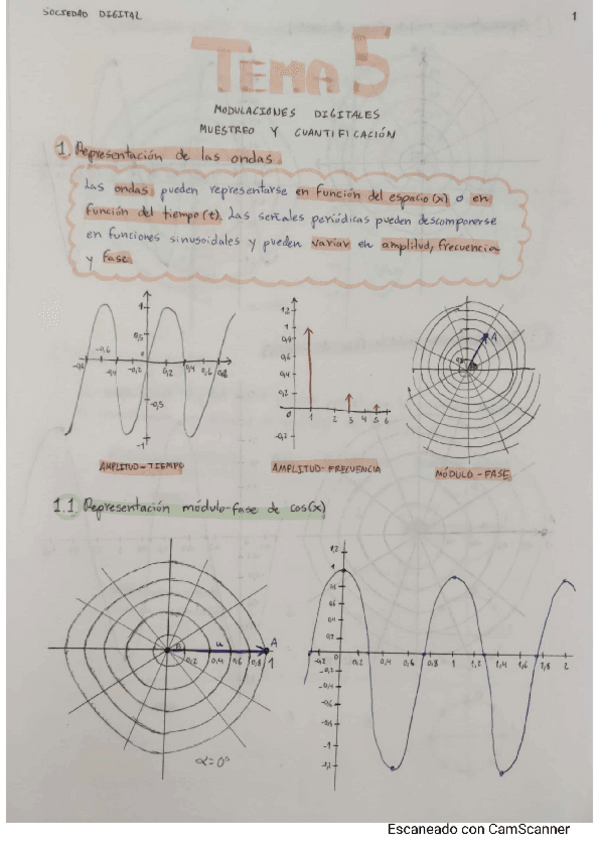 SOCIEDAD DIGITAL
1
TEMA 5
MODULACIONES DIGITALES
MUESTREO Y CUANTIFICACIÓN
1. Representación de las ondas.
Las ondas pueden representarse en función del espacio (x) o en
función del tiempo (t). Las señales periódicas pueden descomponerse
en funciones sinusoidales y pueden variar en amplitud, frecuencia
y fase.
1
0,5
-0,6
-0,4 -0,2 0 0,2 0,4 0,6 0,8
-0,5
-1
AMPLITUD-TIEMPO
1,2
1
0,8
0,6
0,4
0,2
0 1 2 3 4 5 6
-0,2
AMPLITUD-FRECUENCIA
A
MÓDULO-FASE
1.1 Representación módulo-fase de cos(x)
u A
0,2 0,4 0,6 0,8 1
α=0°
1,2
1
0,8
0,6
0,4
0,2
-0,2 0 0,2 0,4 0,6 0,8 1 1,2 1,4 1,6 1,8 2
-0,2
-0,4
-0,6
-0,8
-1
-1,2
Escaneado con CamScanner